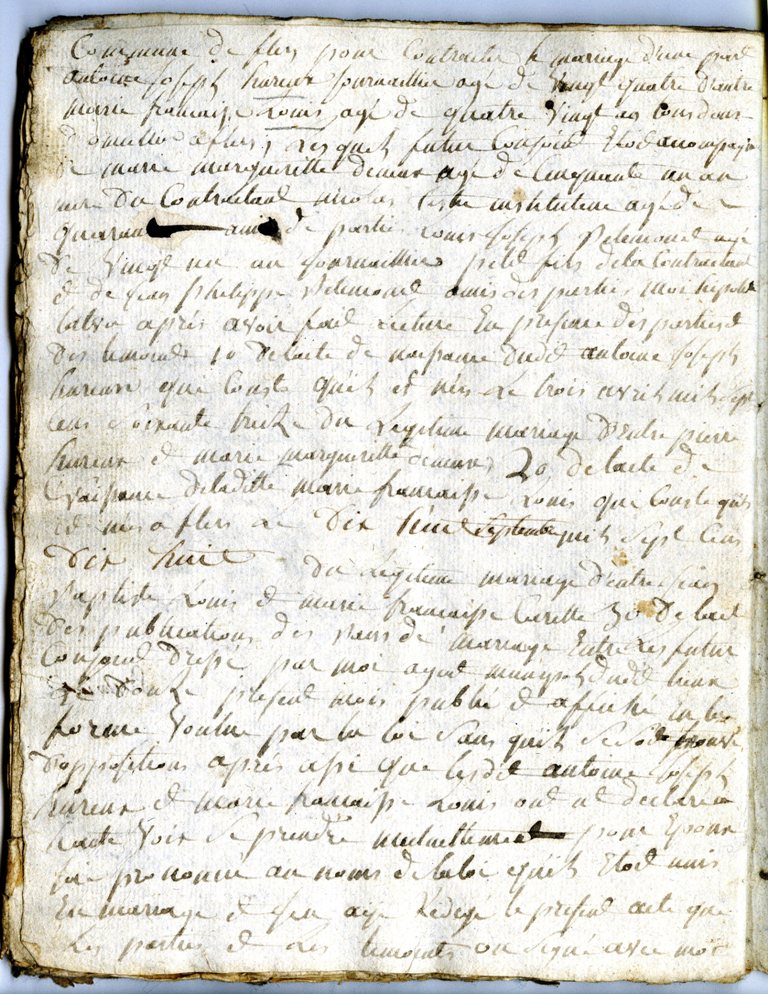 Commune de flers pour Contracter le mariage d'une part
antoine Joseph hureux Journaillier agé de vingt quatre d'autre
marie francaisse Louis agé de quatre vingt an tous deux
domeillié a flers, Lesquels futur Conjoint Etod acompagné
de marie margueritte demeur agé de Cinquante un an
mere du Contractant nicolas instituteur agé de
quarant amis de partie Louis Joseph agé
de vingt un an Journaillier petit fils de la Contractant
et de Jean philippe amis des parties, moi
aprés avoir fait lecture En presence des parties et
des temoins 1o de lacte de naisance dudit antoine Joseph
hureux que Conste qu'il est nés Le trois avril mil Sept
cens Soixante treize du Legitime mariage D'Entre pierre
hureux et marie marguerite demeur, 2o de lacte de
Naisance deladitte marie francaisse Louis que Conste qu'il
est nés a flers Le Dix huit Septembre mil Sept Cens
Dix huit du Légitime mariage d'entre Jean
Baptiste Louis et marie francaisse Carette 3o De lact
Des publications des bans de mariage Entre Les futur
Conjoint Dressé par moi agent municipal dudit lieux
Le Douze present mois publié et affiché En la
forme Voulue par la loi Sans qu'il Se Soit trouvé
D'oppositions aprés asi que lesdit antoine Joseph
hureux et marie francaisse Louis ont déclaré a
haute Voix Se prendre mutuellement pour Epoux
prononcé au noms de la loi qu'il Etod unis
En mariage et Jen ay Rédigé le present acte que
Les parties et Les temoins on Signé avec moi